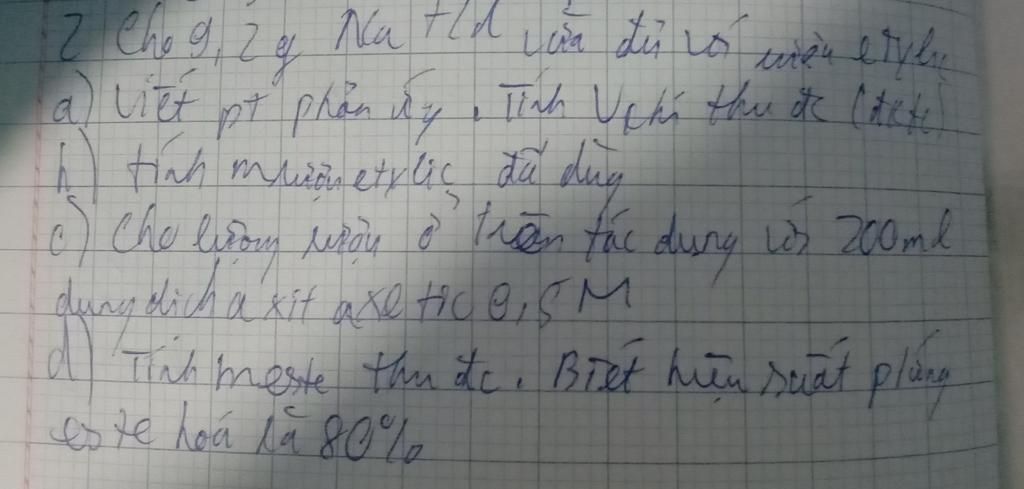 2 Cho 9,2g Na t/d vừa đủ với rượu etylic
a) Viết pt phản ứng. Tính Vkhí thu đc (đktc)
b) tính mrượu etylic đã dùng
c) Cho lượng rượu ở trên tác dụng với 200ml
dung dịch axit axetic 0,5M
d) Tính meste thu đc. Biết hiệu suất p/ứng
este hoá là 80%